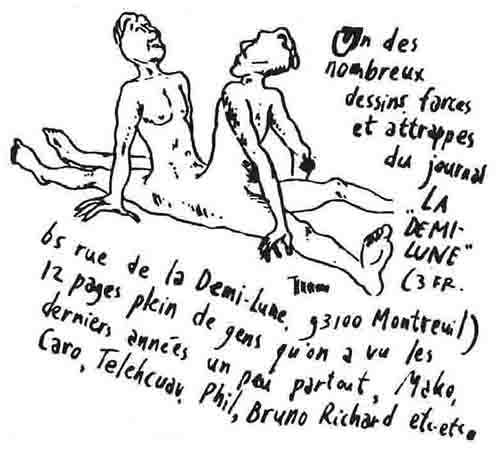 Un des
nombreux
dessins, farces
et attrappes
du journal
"LA
DEMI-
LUNE"
(3 FR.
65 rue de la Demi-Lune, 93100 Montreuil)
12 pages plein de gens qu'on a vu les
derniers années un peu partout, Mako,
Caro, Telehcuav, Phil, Bruno Richard etc-etc.